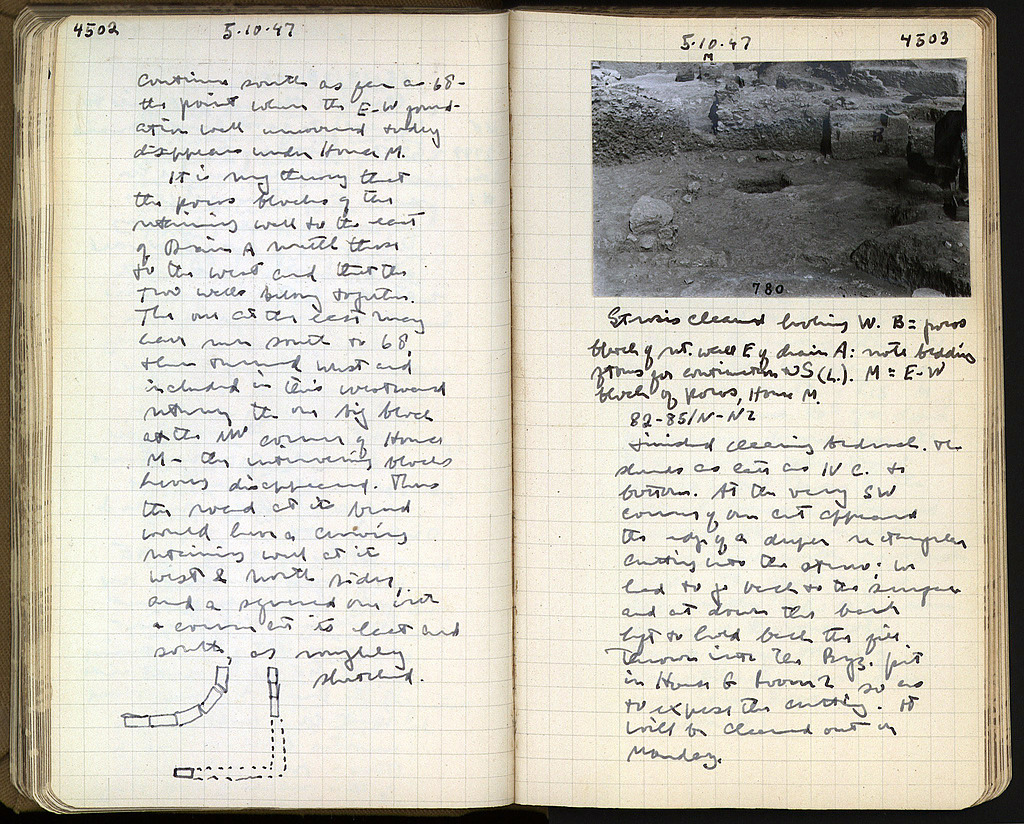 4502
5·10·47
continue south as far as 68 -
the point where the E-W found-
ation wall uncovered today
disappears under House M.
It is my theory that
the poros blocks of the
retaining wall to the east
of Drain A with those
to the west and that the
two walls belong together.
The one at the east may
have run south to 68,
then turned west and
included in this westward
the one big block
at the NW corner of House
M - the intervening blocks
having disappeared. Thus
the road at its bend
would have a curving
retaining wall at its
west & north sides,
and a squared one with
a corner at its east and
south, as roughly
sketched.
5·10·47
4503
M
780
Strosis cleared looking W. B = poros
block of ret. wall E of drain A: note bedding
for continuation to S (L.). M = E-W
block of poros, House M.
82-85/N-N2
Finished clearing bedrock. The
sherds as late as IV C. to
bottom. At the very SW
corner of our cut appeared
the edge of a deeper rectangular
cutting into the strosis: we
had to go back to the
and cut down the bank
left to hold back the fill
thrown into the Byz. pit
in House G Room 2 so as
to expose the cutting. It
will be cleaned out on
Monday.